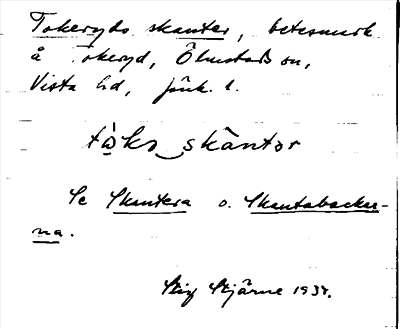 Tokeryds skanter, betesmark
å Tokeryd, Ölmstads sn,
Vista hd, Jönk. l.
skàntər
Se Skantera o. Skantabackar-
na.
Stig Stjärne 1937.